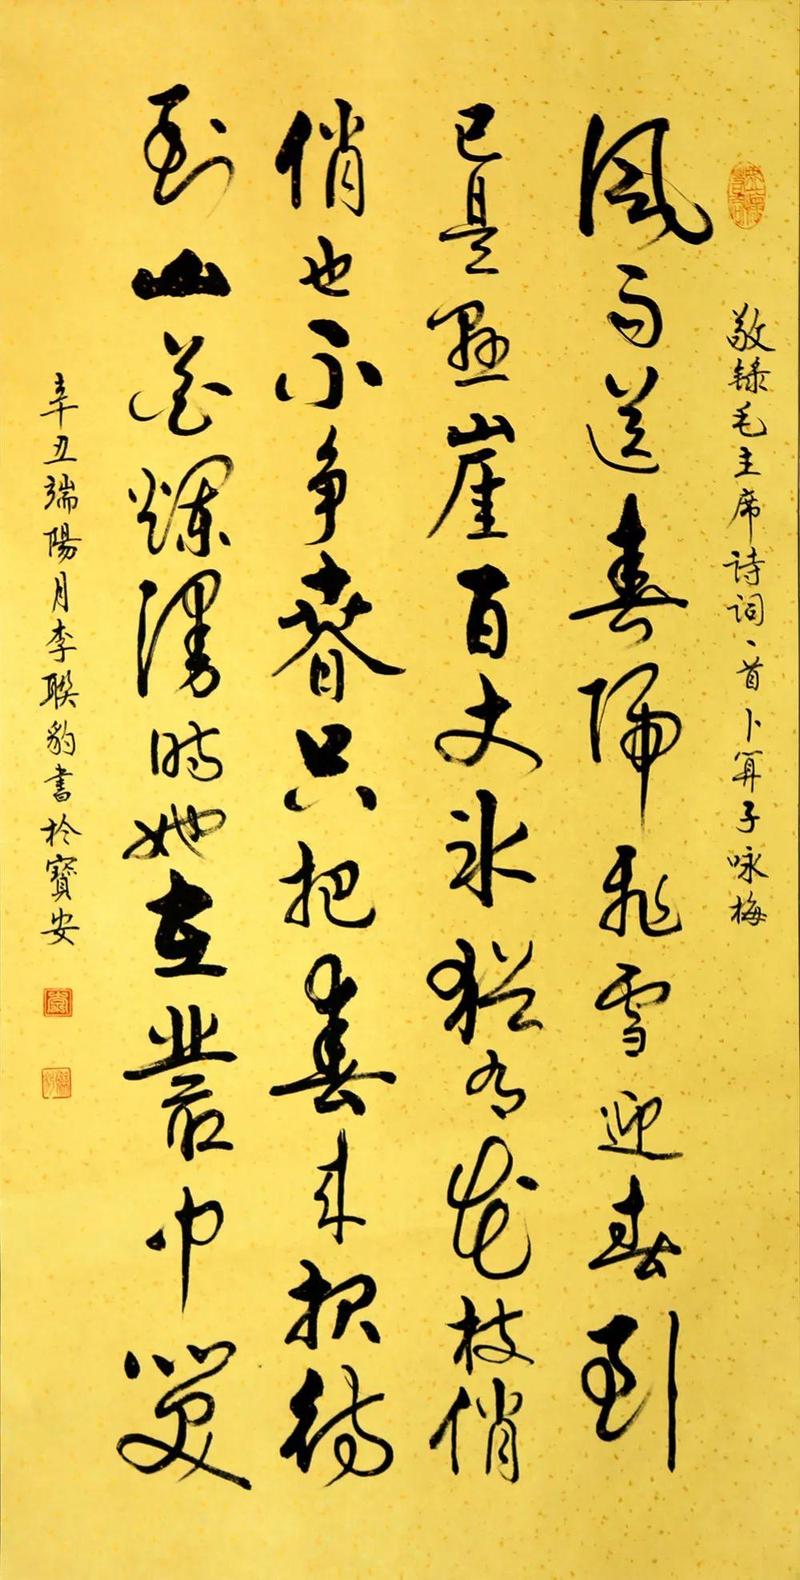 敬録毛主席诗词一首卜算子咏梅
風雨送春歸飛雪迎春到
已是懸崖百丈冰猶有花枝俏
俏也不争春只把春来报待
到山花爛漫時她在叢中笑
辛丑端陽月李聯豹書於寶安